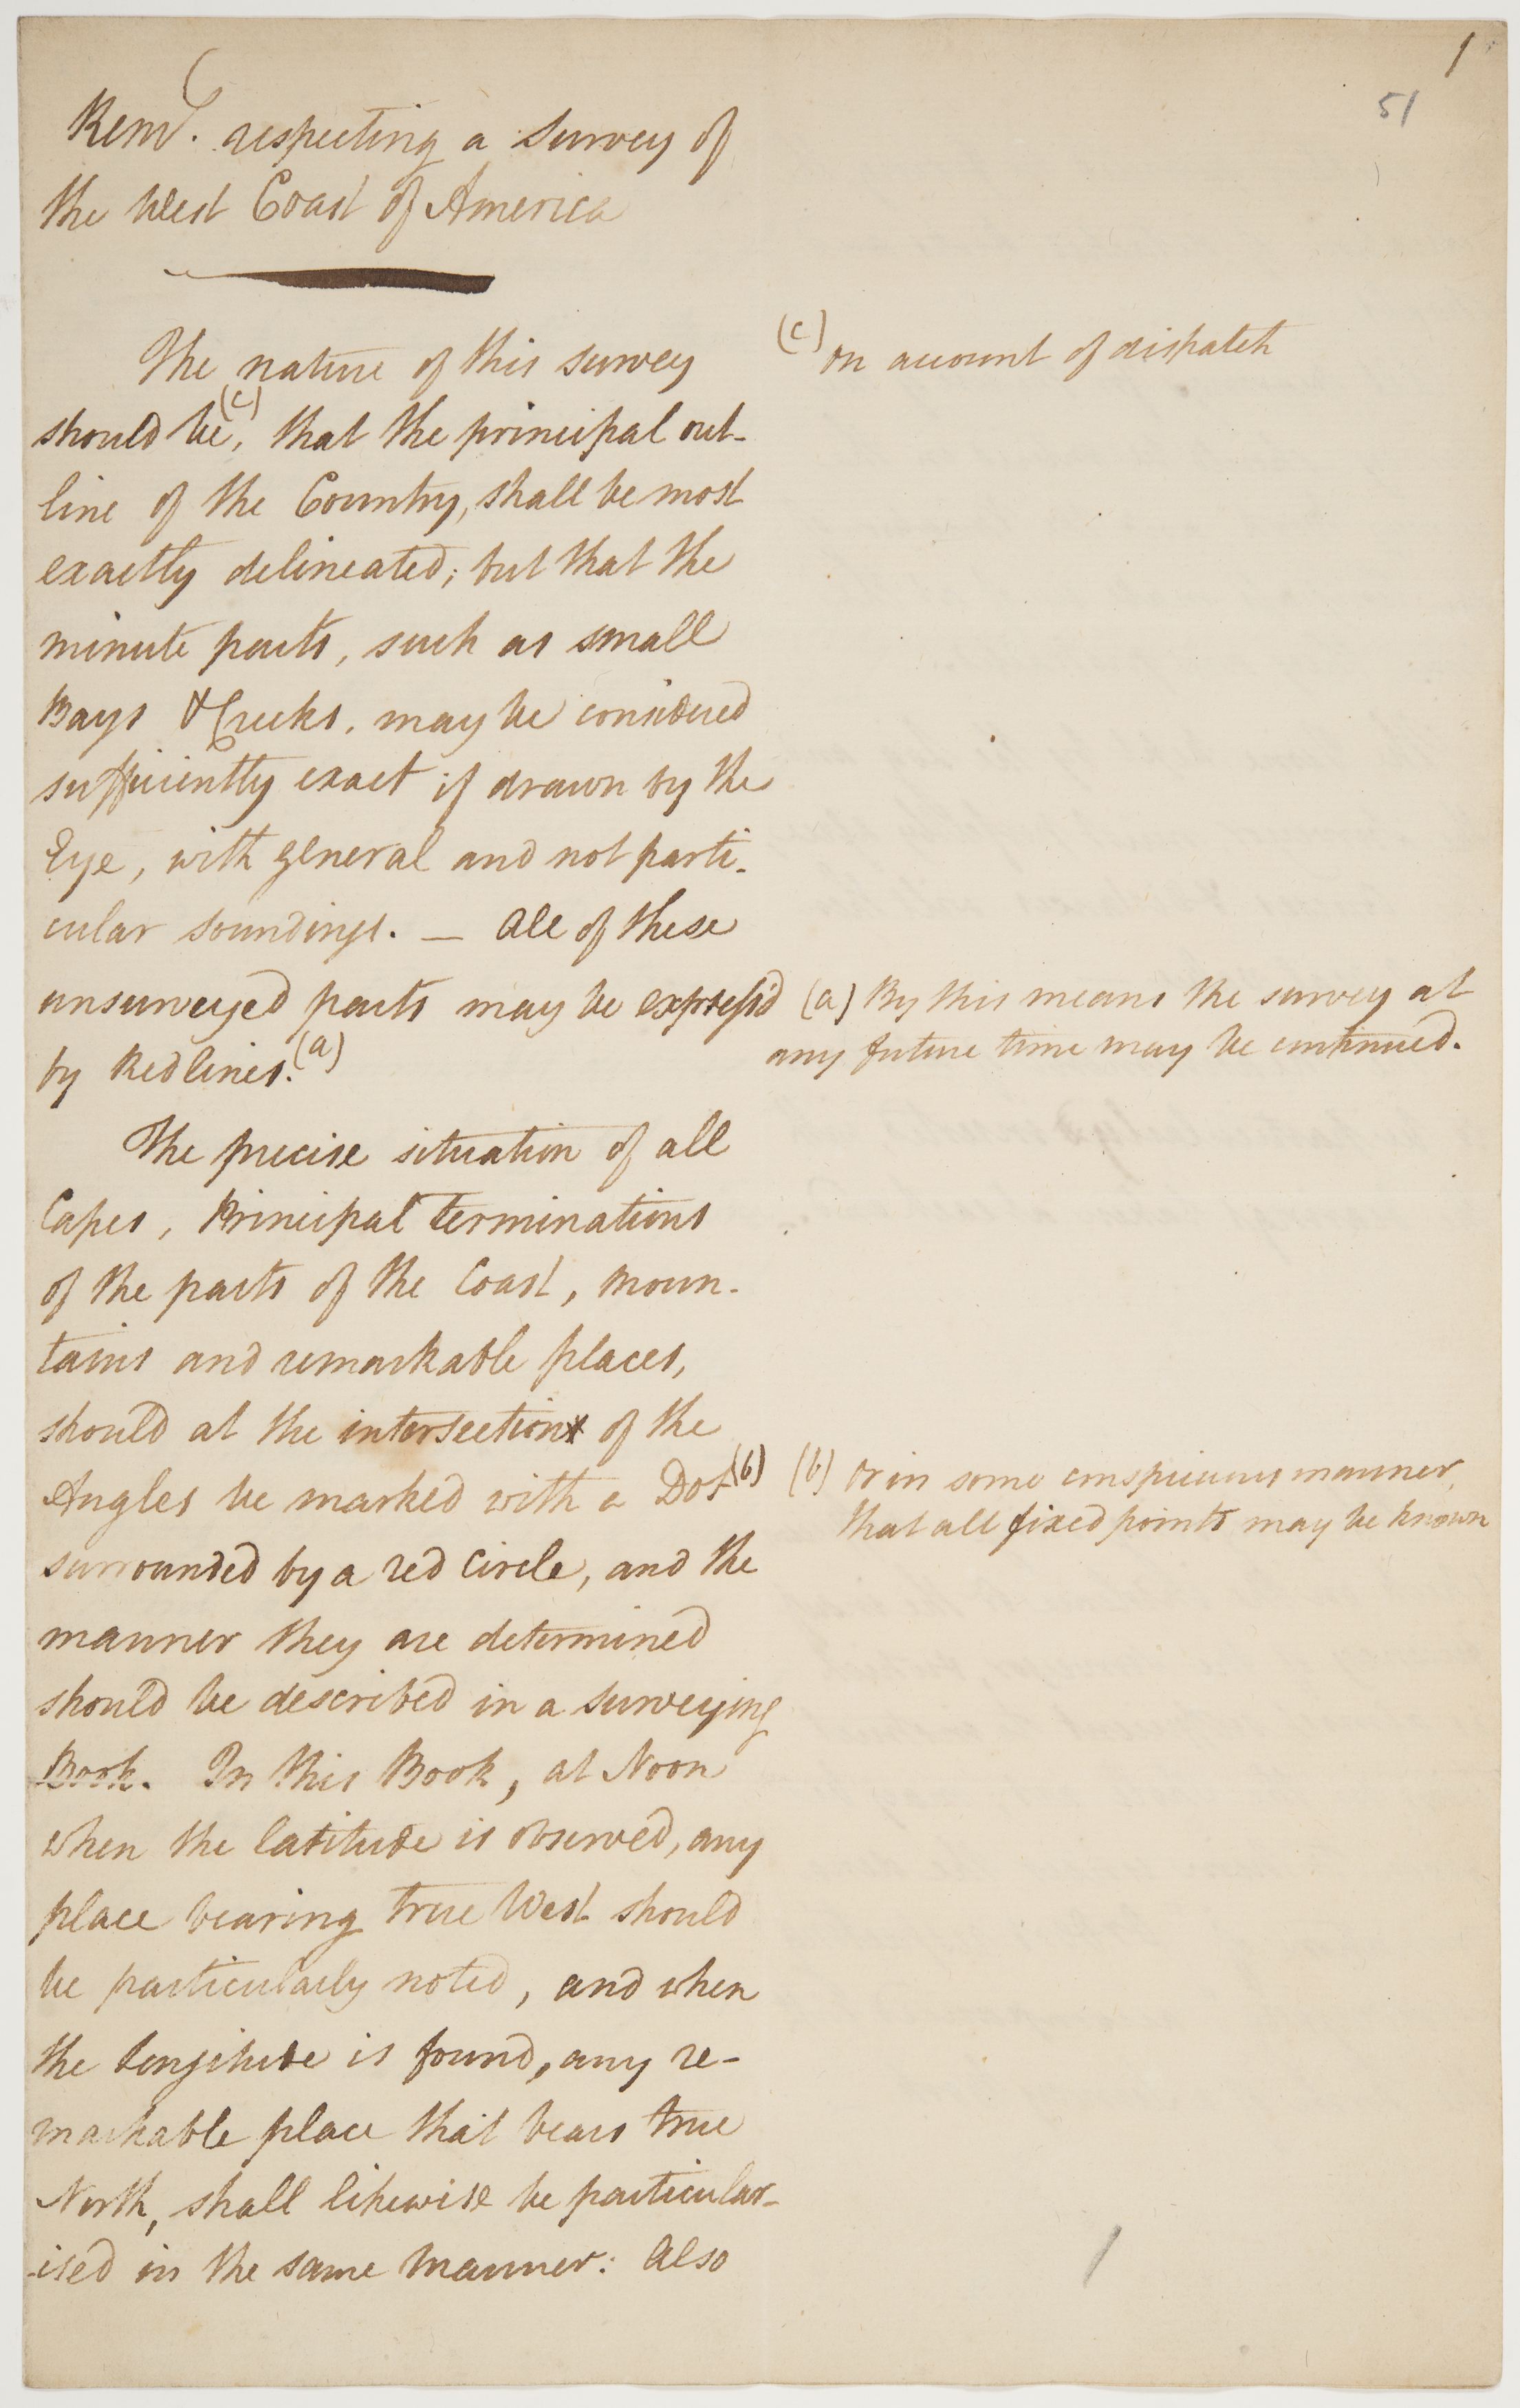 1
51
Remks. respecting a survey of
the West Coast of America
The nature of this survey
should be(c), that the principal out-
line of the Country, shall be most
exactly delineated; but that the
minute parts, such as small
Bays & Creeks, may be considered
sufficiently exact if drawn by the
Eye, with general and not parti-
cular soundings. — All of these
unsurveyed parts may be express'd
by Red lines.(a)
The precise situation of all
Capes, Principal terminations
of the parts of the Coast, moun-
tains and remarkable places,
should at the intersection of the
Angles be marked with a Dot(b)
surrounded by a red Circle, and the
manner they are determined
should be described in a surveying
Book. In this Book, at Noon
when the latitude is observed, any
place bearing true West should
be particularly noted, and when
the longitude is found, any re-
markable place that bears true
North, shall likewise be particular-
-ised in the same manner: Also
(c) on account of dispatch
(a) By this means the survey at
any future time may be continued.
(b) or in some conspicuous manner,
that all fixed points may be known
1